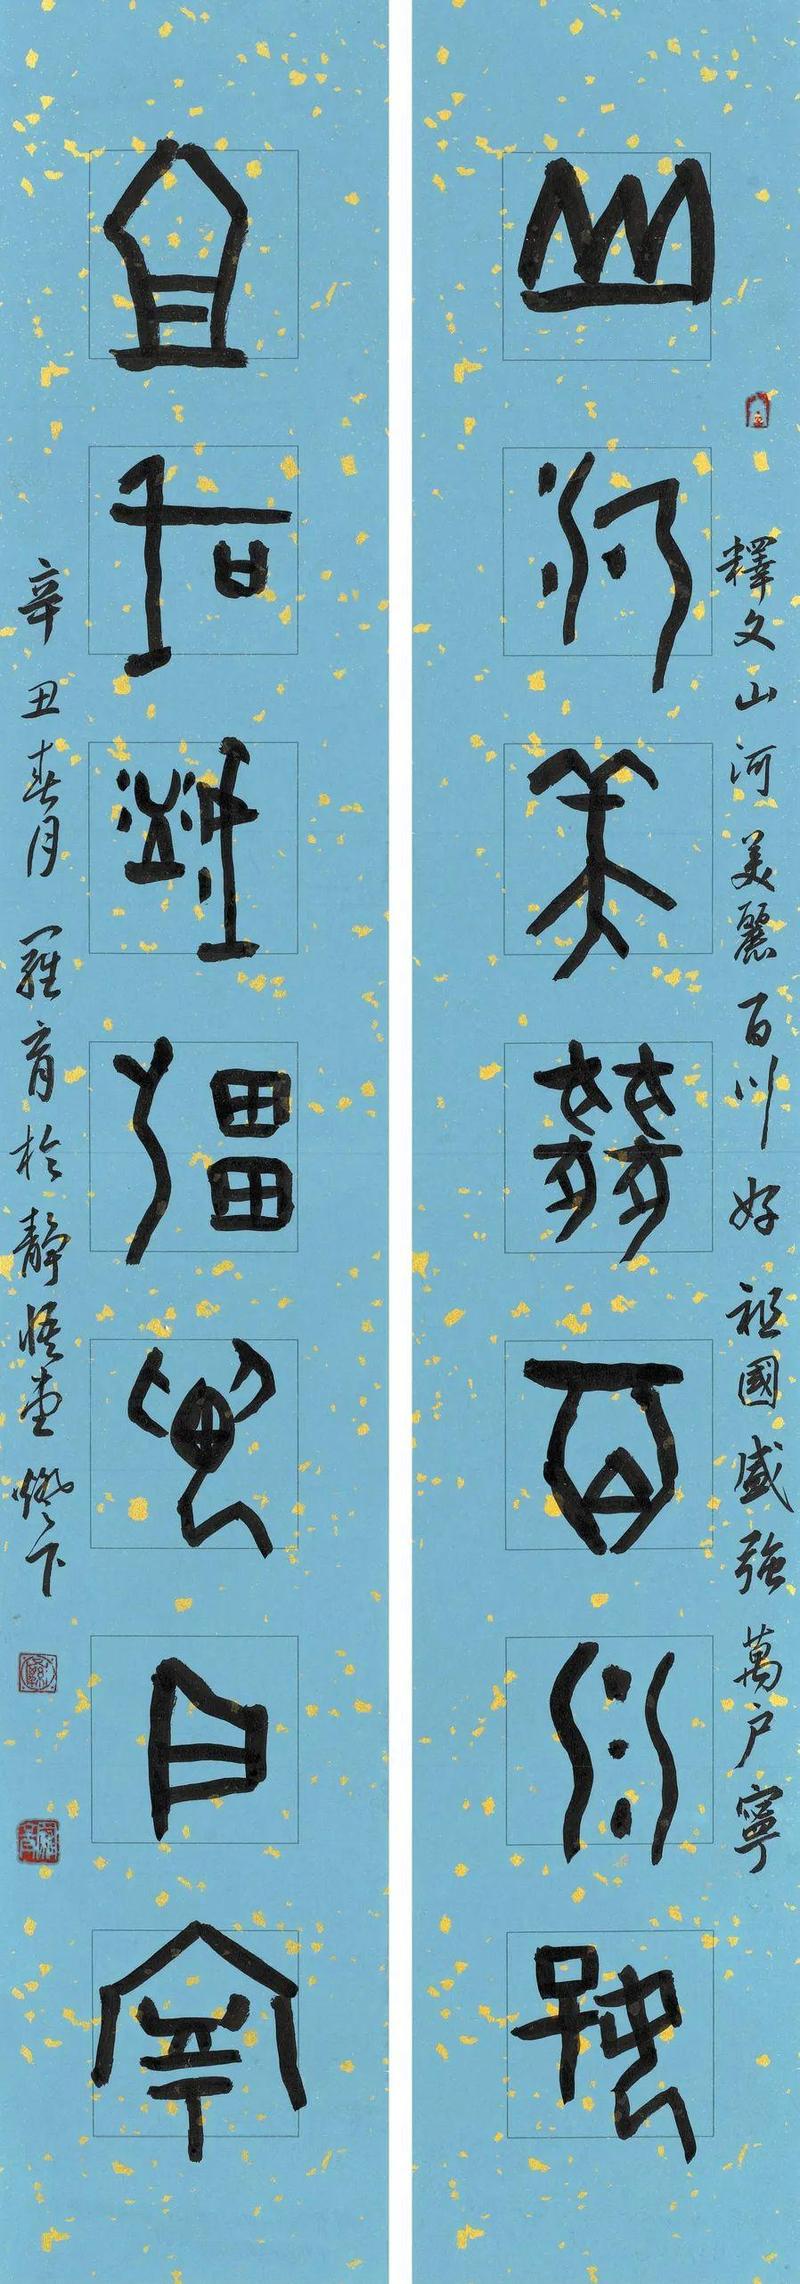 釋文山河美麗百川好祖國盛強萬户寧
山河美麗百川好
祖國盛強萬户寧
辛丑春月羅育於靜悟堂燈下